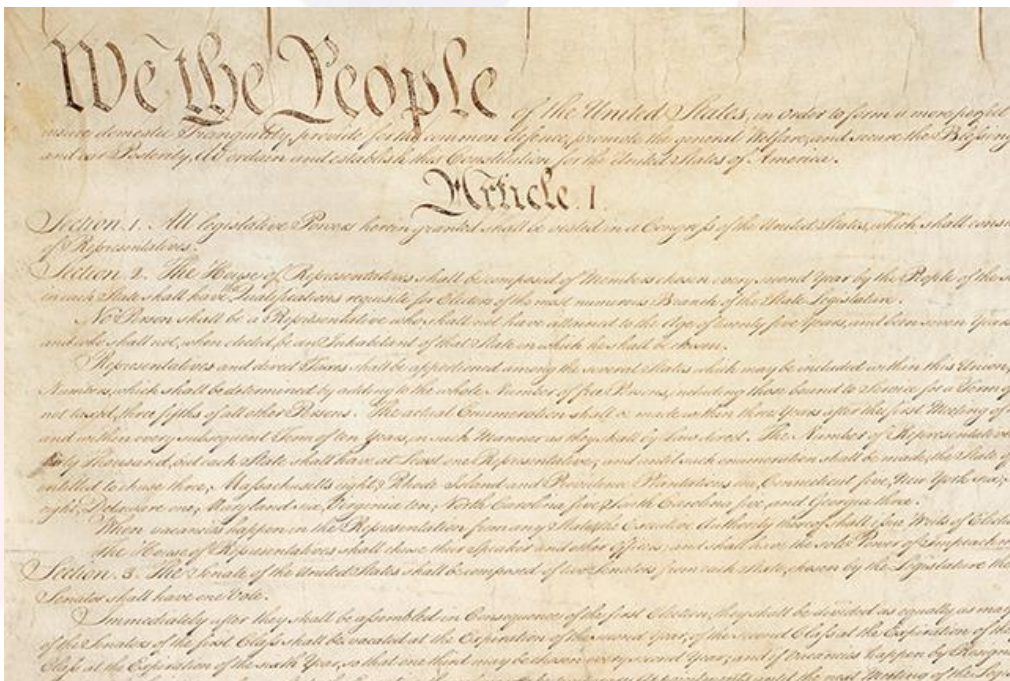 We the People of the United States, in order to form a more perfect
insure domestic Tranquility, provide for the common defence, promote the general Welfare, and secure the Blessing
and our Posterity, do ordain and establish this Constitution for the United States of America.
Article. I.
Section. 1. All legislative Powers herein granted shall be vested in a Congress of the United States, which shall consis
of Representatives.
Section. 2. The House of Representatives shall be composed of Members chosen every second Year by the People of the
in each State shall have Qualifications requisite for Electors of the most numerous Branch of the State Legislature.
No Person shall be a Representative who shall not have attained to the Age of twenty five Years, and been seven Years
and who shall not, when elected, be an Inhabitant of that State in which he shall be chosen.
Representatives and direct Taxes shall be apportioned among the several States which may be included within this Union,
Numbers, which shall be determined by adding to the whole Number of free Persons, including those bound to Service for a Term of
not taxed, three fifths of all other Persons. The actual Enumeration shall be made within three Years after the first Meeting of
and within every subsequent Term of ten Years, in such Manner as they shall by Law direct. The Number of Representatives
thirty Thousand, but each State shall have at Least one Representative; and until such enumeration shall be made, the State of
entitled to chuse three, Massachusetts eight, Rhode Island and Providence Plantations one, Connecticut five, New York six,
eight, Delaware one, Maryland six, Virginia ten, North Carolina five, South Carolina five, and Georgia three.
When vacancies happen in the Representation from any State, the Executive Authority thereof shall issue Writs of Electio
The House of Representatives shall chuse their Speaker and other Officers; and shall have the sole Power of Impeachm
Section. 3. The Senate of the United States shall be composed of two Senators from each State, chosen by the Legislature the
Senator shall have one Vote.
Immediately after they shall be assembled in Consequence of the first Election, they shall be divided as equally as may
of the Senators of the first Class shall be vacated at the Expiration of the second Year, of the second Class at the Expiration of the
Class at the Expiration of the sixth Year, so that one third may be chosen every second Year; and if Vacancies happen by Resign
until the next Meeting of the Legis